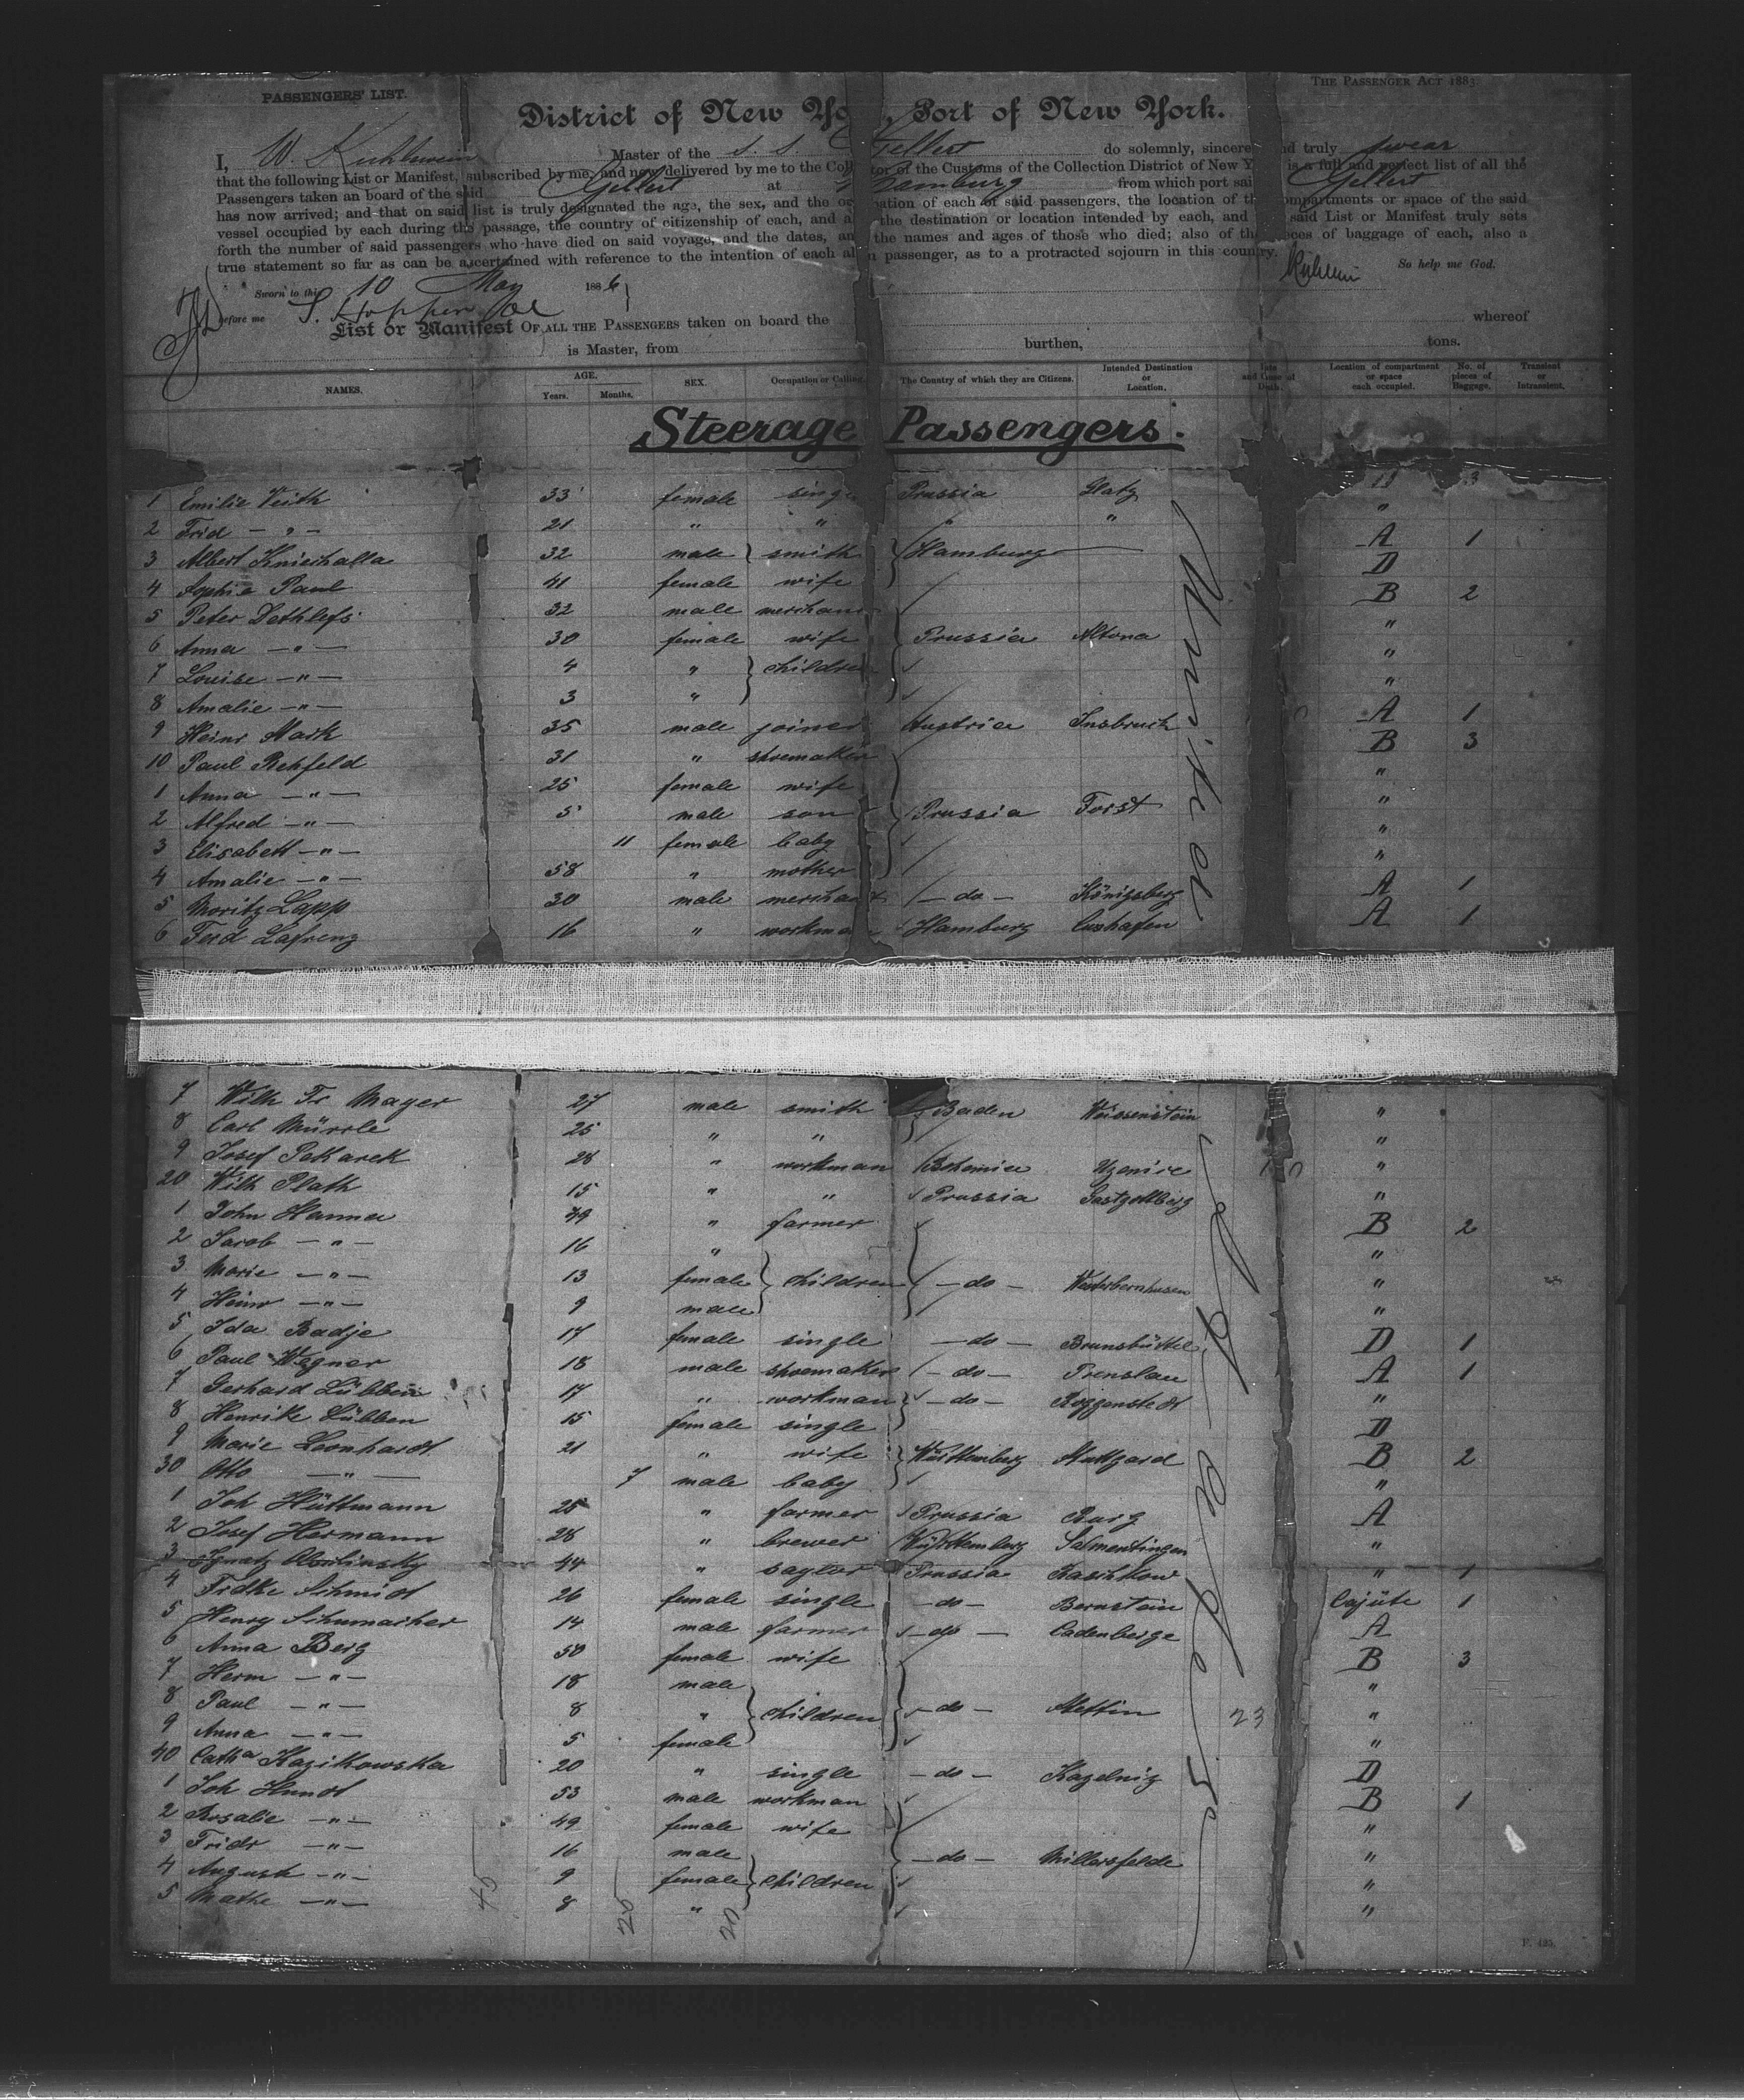 PASSENGERS' LIST.
THE PASSENGER ACT 1883
District of New Yo , Port of New York.
I, W. Kuhlewein Master of the S. S. Gellert do solemnly, sincere nd truly swear
that the following List or Manifest, subscribed by me, and now delivered by me to the Coll tor of the Customs of the Collection District of New Y is a full and perfect list of all the
Passengers taken on board of the said Gellert at Hamburg from which port sai Gellert
has now arrived; and that on said list is truly designated the age, the sex, and the oc pation of each of said passengers, the location of th ompartments or space of the said
vessel occupied by each during the passage, the country of citizenship of each, and a the destination or location intended by each, and said List or Manifest truly sets
forth the number of said passengers who have died on said voyage, and the dates, an the names and ages of those who died; also of th eces of baggage of each, also a
true statement so far as can be ascertained with reference to the intention of each al n passenger, as to a protracted sojourn in this country.
So help me God.
Sworn to this 10 May 1886
before me S. Hopper
List or Manifest OF ALL THE PASSENGERS taken on board the whereof
is Master, from burthen, tons.
NAMES. AGE. Years. Months. SEX. Occupation or Calling. The Country of which they are Citizens. Intended Destination or Location. Date and Cause of Death. Location of compartment or space each occupied. No. of pieces of Baggage. Transient or Intransient.
Steerage Passengers.
1 Emilie Veith 33 female singe Prussia Glatz 3
2 Frid - " - 21 " " " " "
3 Albert Knieshalla 32 male smith Hamburg A 1
4 Sophie Paul 41 female wife D
5 Peter Dethlefs 32 male merchan B 2
6 Anna - " - 30 female wife Prussia Altona "
7 Louise - " - 4 " children "
8 Amalie - " - 3 " "
9 Heinr Mark 35 male joiner Austria Insbruck A 1
10 Paul Rehfeld 31 " shoemaker B 3
1 Anna - " - 25 female wife "
2 Alfred - " - 5 male son Prussia Forst "
3 Elisabeth - " - 11 female baby "
4 Amalie - " - 58 " mother "
5 Moritz Lapp 30 male merchant - do - Königsberg A 1
6 Ferd Lafrenz 16 " workman Hamburg Cuxhafen A 1
New York
7 Wilh Fr Mayer 27 male smith Baden Weissenstein "
8 Carl Mürrle 25 " " "
9 Josef Pekarek 28 " workman Bohemia Uzenice "
20 Wilh Plath 15 " " Prussia "
1 John Hanna 49 " farmer B 2
2 Jacob - " - 16 " "
3 Marie - " - 13 female children - do - "
4 Heinr - " - 9 male "
5 Ida Badje 17 female single - do - Brunsbüttel D 1
6 Paul Wegner 18 male shoemaker - do - Prenslau A 1
7 Gerhard Lübben 17 " workman - do - Roggenstedt "
8 Henrike Lübben 15 female single D
9 Marie Leonhardt 21 " wife Württemberg Stuttgard B 2
30 Otto - " - 7 male baby "
1 Joh Hüttmann 25 " farmer Prussia Burg A
2 Josef Hermann 28 " brewer Württemberg Salmentingen "
3 Ignatz 44 " Prussia " 1
4 Fridke Schmidt 26 female single - do - Bernstein Cajüte 1
5 Henry Schumacher 14 male farmer - do - Cadenberge A
6 Anna Berg 50 female wife B 3
7 Herm - " - 18 male "
8 Paul - " - 8 " children - do - Stettin 23 "
9 Anna - " - 5 female "
40 Catha Kazikowska 20 " single - do - Kazelniz D
1 Joh Hundt 53 male workman B 1
2 Rosalie - " - 49 female wife "
3 Fridr - " - 16 male - do - Millersfelde "
4 August - " - 9 female children "
5 Mathe - " - 8 " "
45 25 20
F. 425.